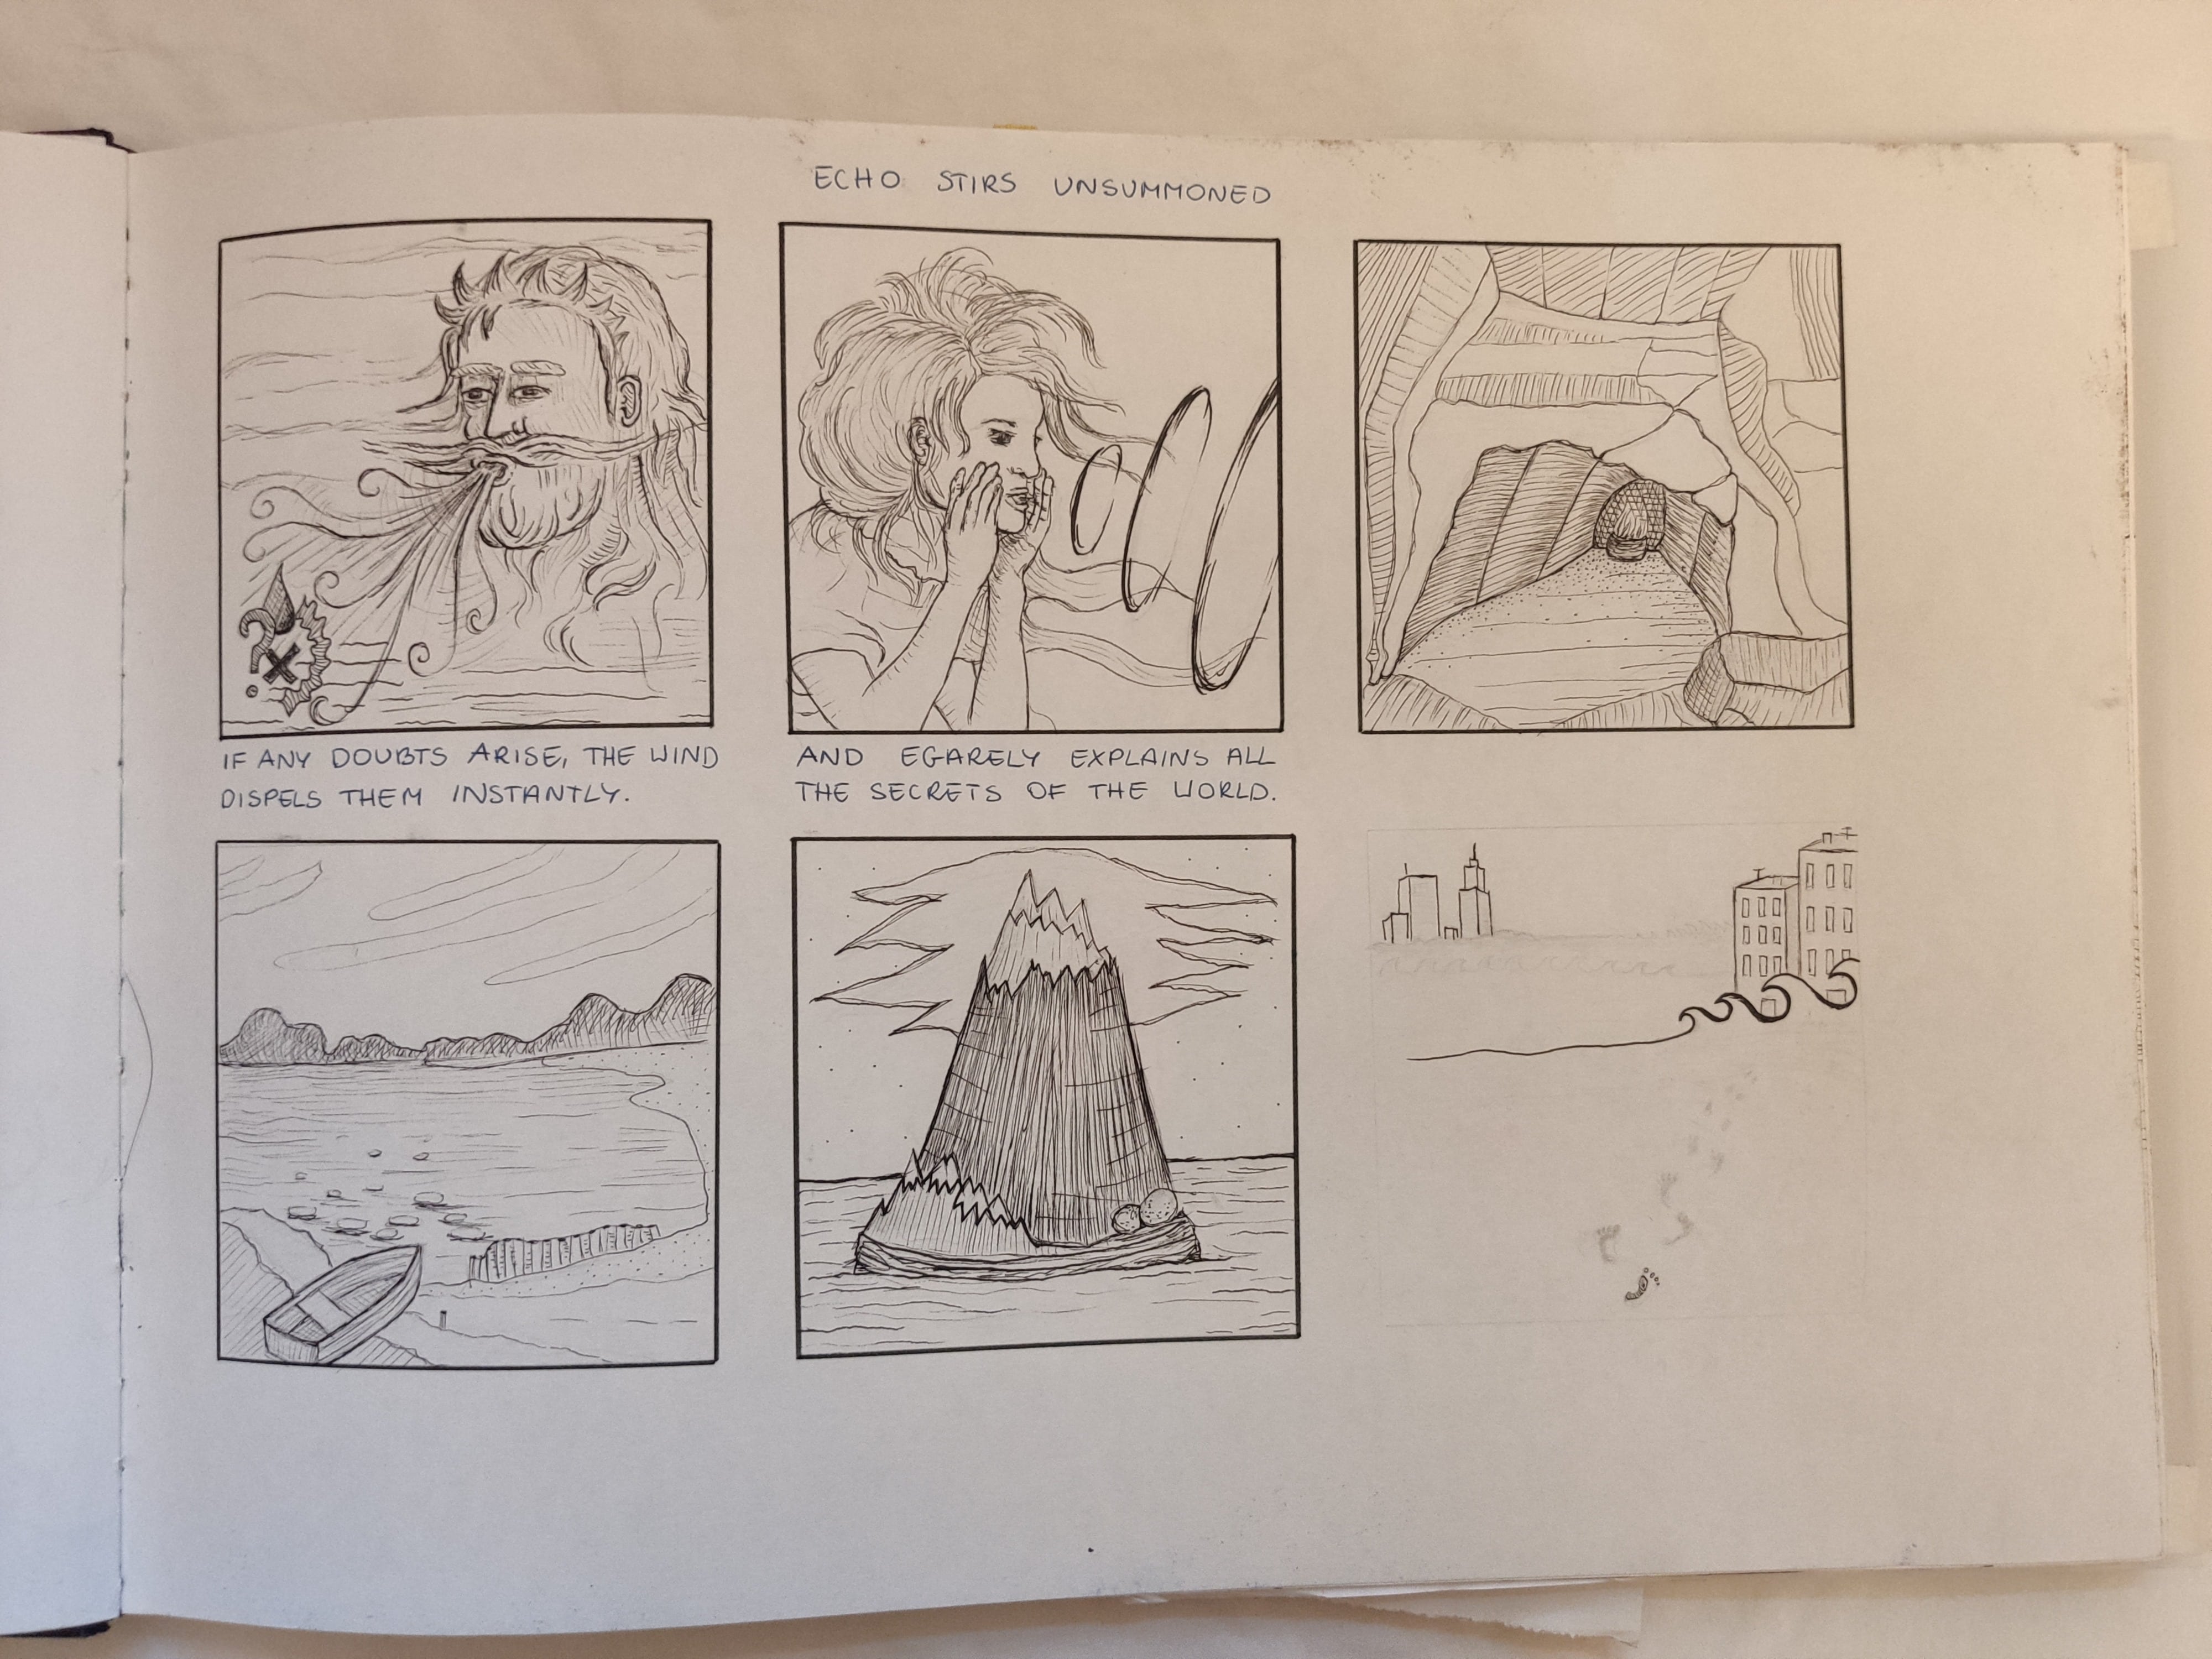 ECHO STIRS UNSUMMONED
IF ANY DOUBTS ARISE, THE WIND
DISPELS THEM INSTANTLY.
AND EGARELY EXPLAINS ALL
THE SECRETS OF THE WORLD.
?